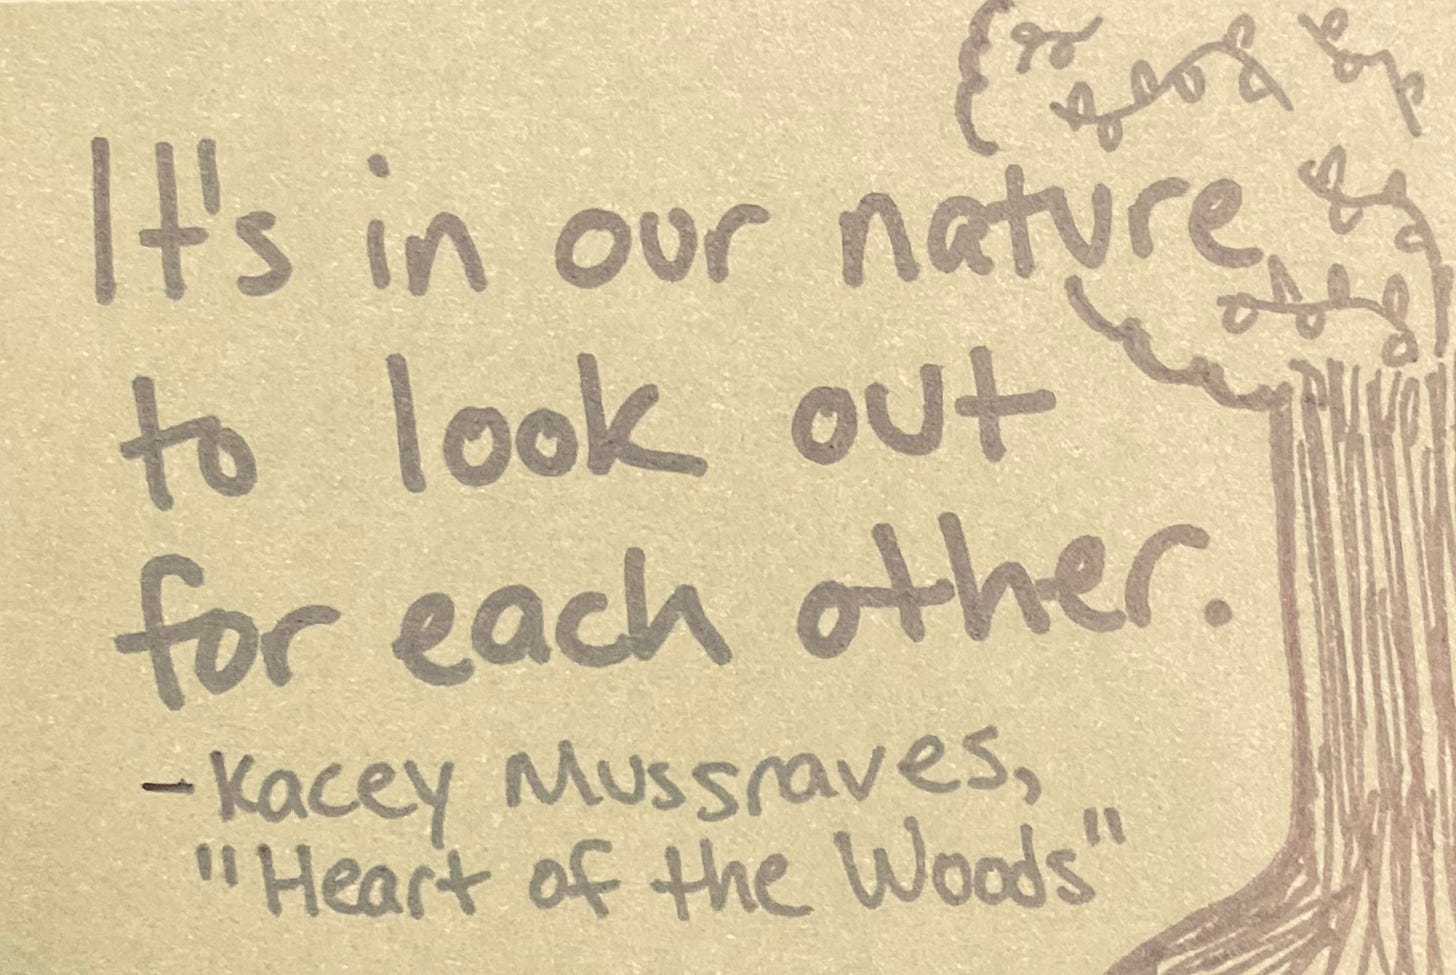 It's in our nature
to look out
for each other.
- Kacey Mussraves,
"Heart of the Woods"